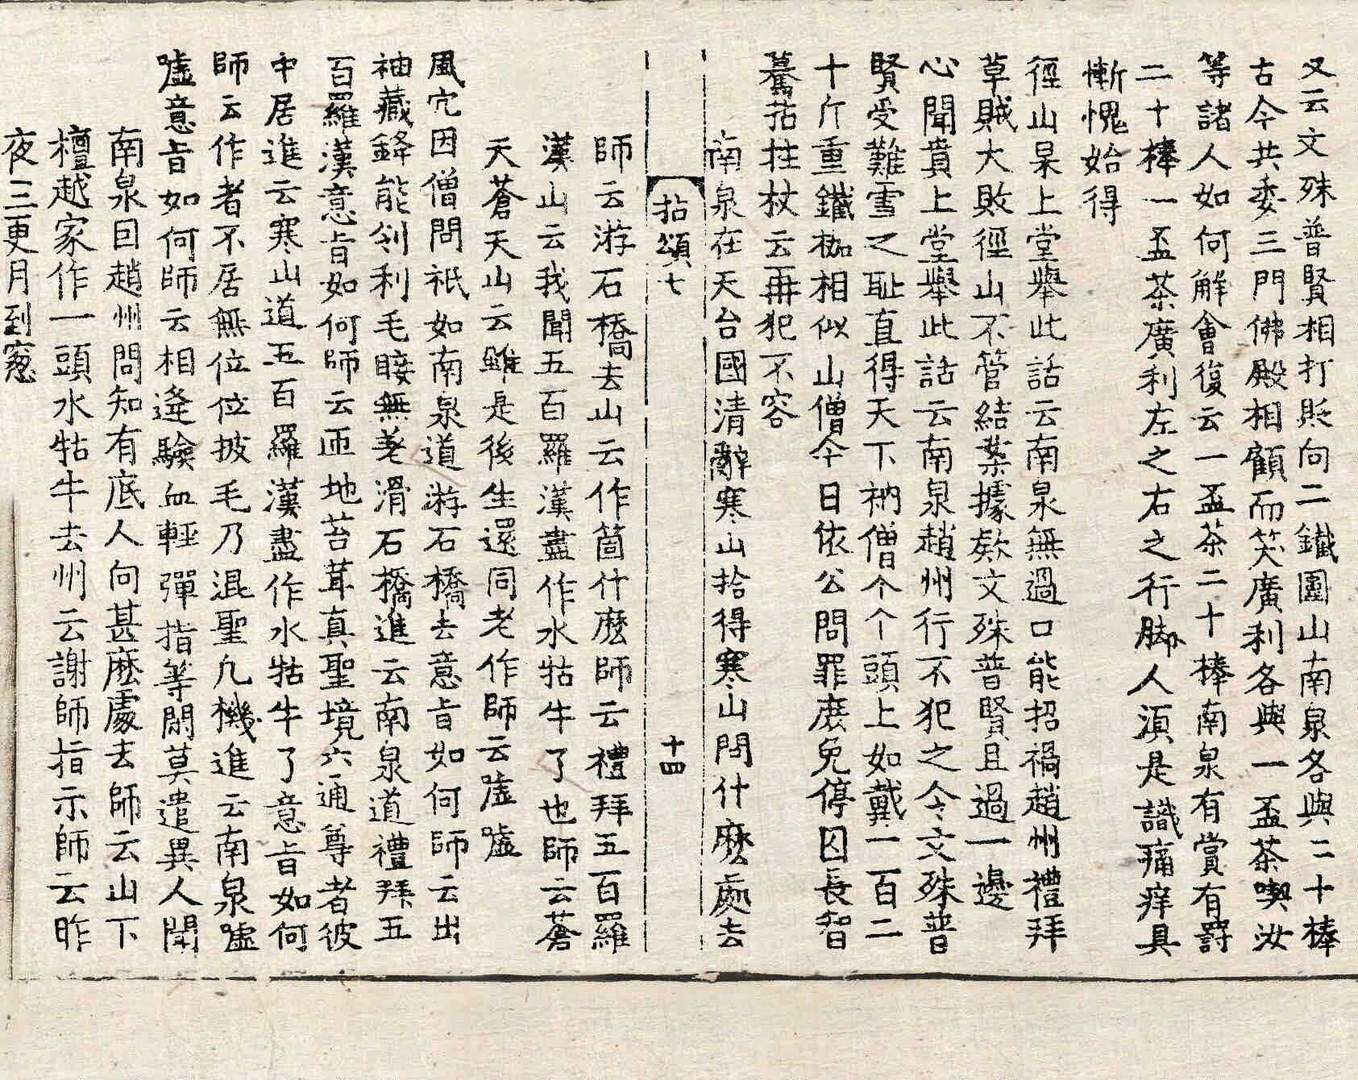 又云文殊普賢相打貶向二鐵圍山南泉各與二十棒
古今共委三門佛殿相顧而笑廣利各與一盃茶喫汝
等諸人如何解會復云一盃茶二十棒南泉有賞有罰
二十棒一盃茶廣利左之右之行脚人須是識痛痒具
慚愧始得
徑山杲上堂舉此話云南泉無過口能招禍趙州禮拜
草賊大敗徑山不管結案據欵文殊普賢且過一邊
心聞賁上堂舉此話云南泉趙州行不犯之令文殊普
賢受難雪之耻直得天下衲僧个个頭上如戴一百二
十斤重鐵枷相似山僧今日依公問罪庶免停囚長智
驀拈拄杖云再犯不容
南泉在天台國清辭寒山拾得寒山問什麽處去
拈頌七 十四
師云游石橋去山云作箇什麽師云禮拜五百羅
漢山云我聞五百羅漢盡作水牯牛了也師云蒼
天蒼天山云雖是後生還同老作師云噓噓
風穴因僧問祇如南泉道游石橋去意旨如何師云出
袖藏鋒能刢利毛睫無差滑石橋進云南泉道禮拜五
百羅漢意旨如何師云匝地苔茸真聖境六通尊者彼
中居進云寒山道五百羅漢盡作水牯牛了意旨如何
師云作者不居無位位披毛乃混聖凡機進云南泉噓
噓意旨如何師云相逢驗血輕彈指等閑莫遣異人聞
南泉因趙州問知有底人向甚麽處去師云山下
檀越家作一頭水牯牛去州云謝師指示師云昨
夜三更月到窓